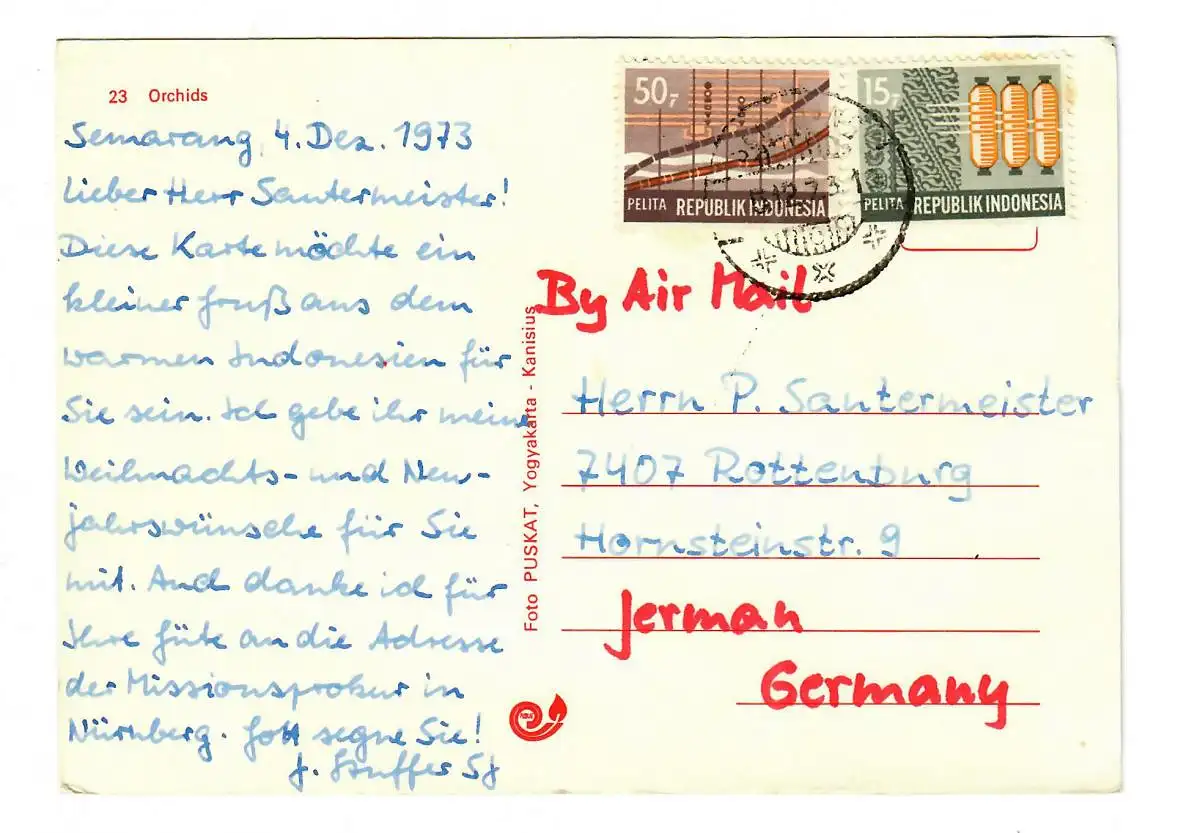 23 Orchids
Semarang, 4. Dez. 1973
Lieber Herr Santermeister!
Diese Karte möchte ein
kleiner Gruß aus dem
warmen Indonesien für
Sie sein. Ich gebe ihr meine
Weihnachts- und Neu-
jahrswünsche für Sie
mit. Auch danke ich für
Ihre Güte an die Adresse
der Missionsprokur in
Nürnberg. Gott segne Sie!
J. Stuffer SJ
Foto PUSKAT, Yogyakarta - Kanisius
50,-
PELITA REPUBLIK INDONESIA
15,-
PELITA REPUBLIK INDONESIA
By Air Mail
Herrn P. Santermeister
7407 Rottenburg
Hornsteinstr. 9
Jerman
Germany